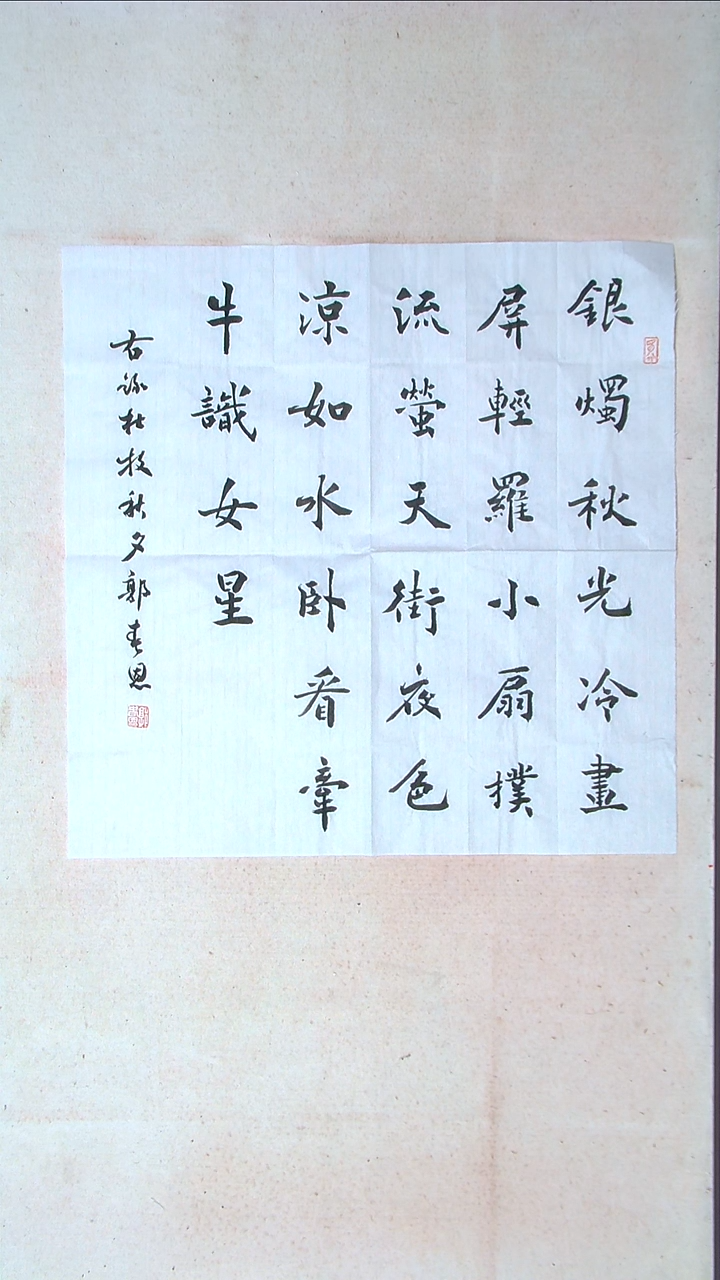 銀燭秋光冷畫
屏輕羅小扇撲
流螢天街夜色
涼如水卧看牽
牛識女星
右錄杜牧秋夕郭春恩